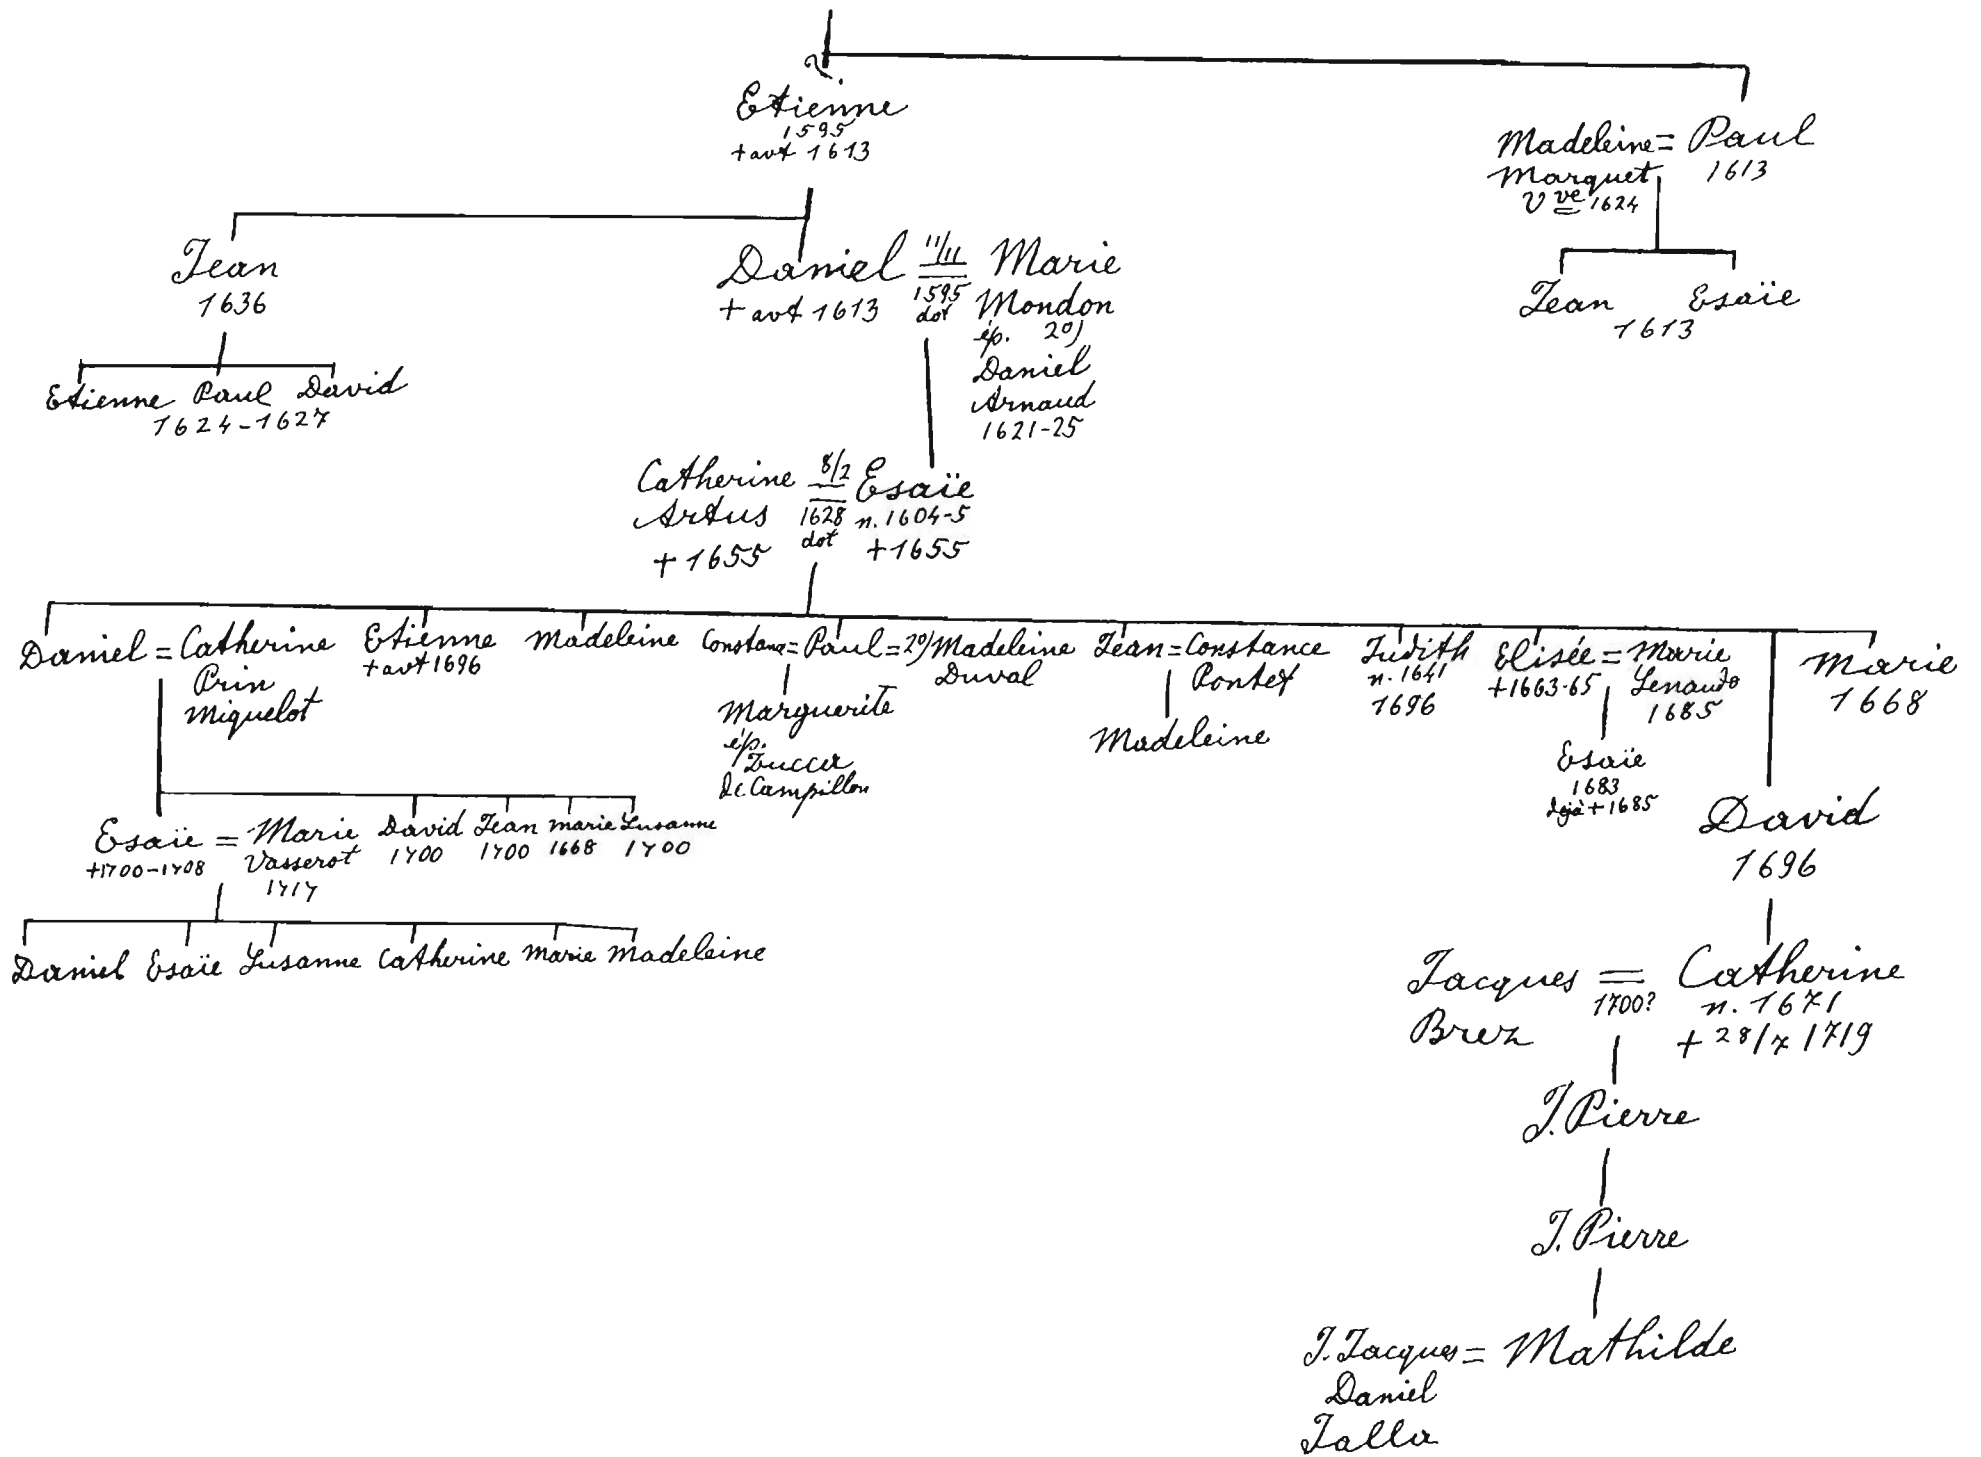 ?
Etienne
1595
+ avt 1613
Madeleine = Paul
Marquet 1613
Vve 1624
Jean Esaïe
1613
Jean
1636
Etienne Paul David
1624-1627
Daniel 11/11 Marie
+ avt 1613 1595 Mondon
dot ép. 2º)
Daniel
Arnaud
1621-25
Catherine 8/2 Esaïe
Artus 1628 n. 1604-5
+ 1655 dot + 1655
Daniel = Catherine
Prin
Miquelot
Etienne
+ avt 1696
Madeleine
Constance = Paul = 2º) Madeleine
Duval
Marguerite
ép.
de Campillon
Jean = Constance
Pontet
Madeleine
Judith
n. 1641
1696
Elisée = Marie
+1663-65
1685
Esaïe
1683
déjà + 1685
Marie
1668
Esaïe = Marie
+1700-1708 Vasserot
1717
David
1700
Jean
1700
Marie
1668
Susanne
1700
Daniel Esaïe Susanne Catherine Marie Madeleine
David
1696
Jacques = Catherine
Brez 1700? n. 1671
+ 28/7 1719
J. Pierre
J. Pierre
J. Jacques = Mathilde
Daniel
Jalla